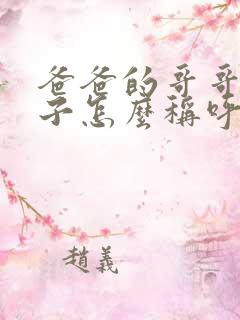 爸爸的哥哥
子怎麼稱呼
趙義